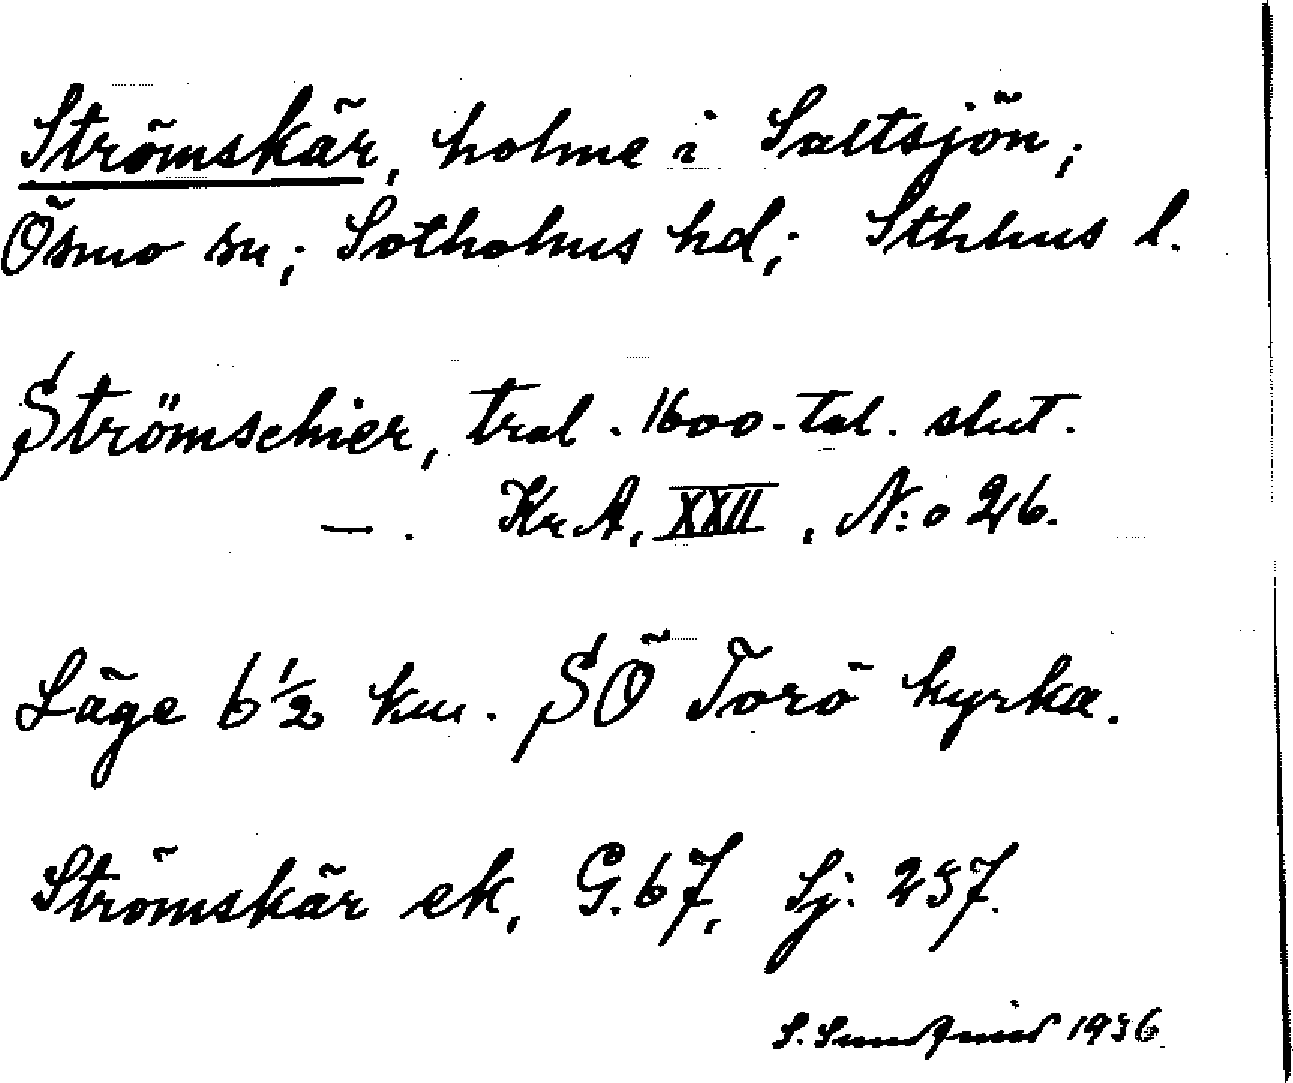 Strömskär, holme i Saltsjön;
Ösmo sn; Sotholms hd; Sthlms l.
Strömschier, tral. 1600-tal. slut.
—. Kr. A. XXII, N:o 26.
Läge 6 1/2 km. SÖ Torö kyrka.
Strömskär ek, G. 67, Sj: 257.
S. Sundqvist 1936